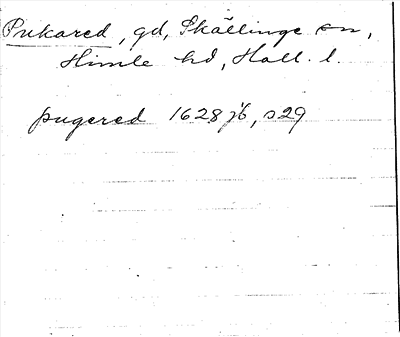 Pukared, gd, Skällinge sn,
Himle hd, Hall. l.
pugered 1628 jb, s29